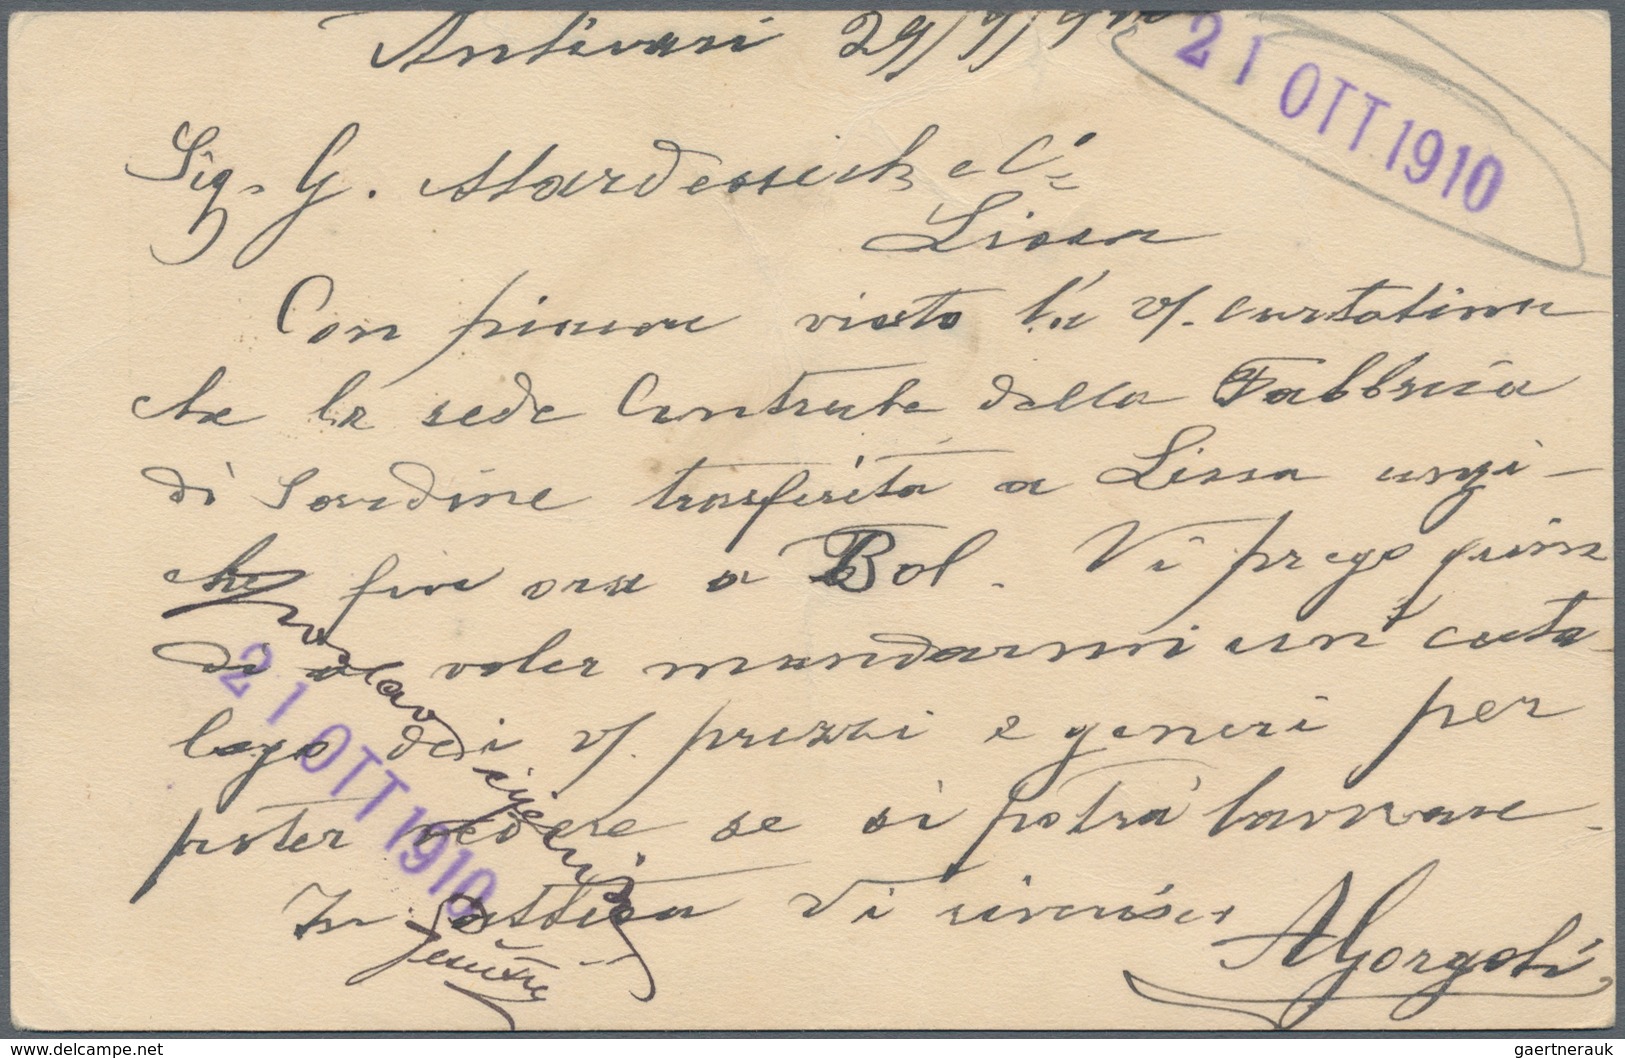 Antivari 29/9/910
21 OTT 1910
Sig. G. Mardessich e C.
Lissa
Con piacere visto la v/. cartolina
che la sede Centrale della Fabbrica
di Sardine trasferita a Lissa anzi-
che fin ora a Bol. Vi prego quin
di voler mandarmi un cata-
logo dei v/. prezzi e generi per
poter vedere se si potrà lavorare.
In attesa Vi riverisco
21 OTT 1910
AGorgoli
delcampe.net
gaertnerauk